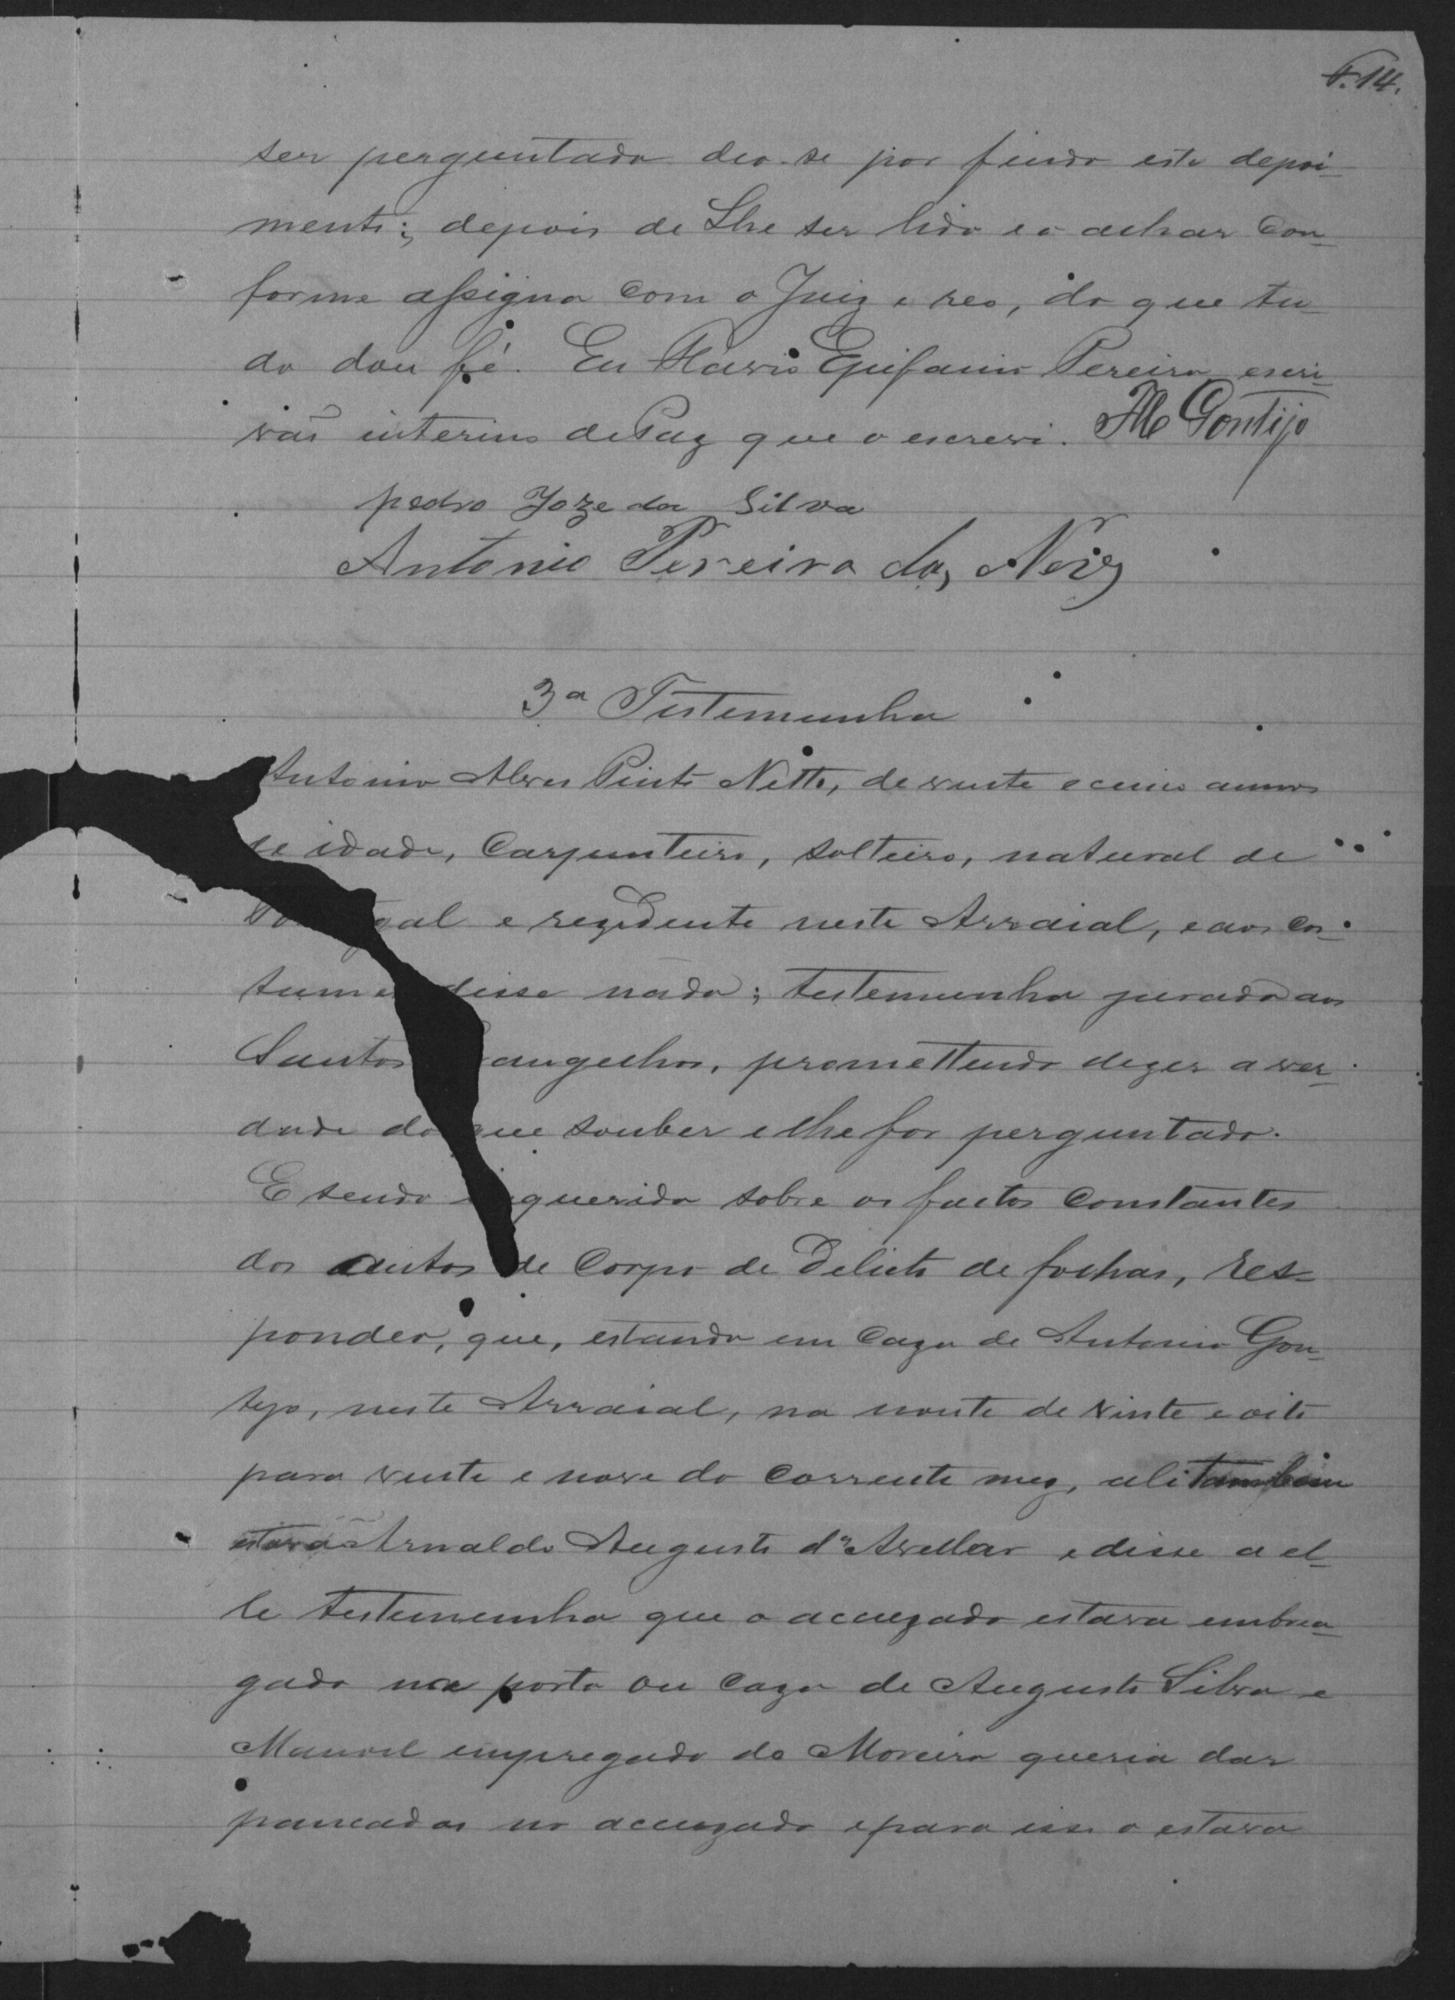 f. 14.
ser perguntado deo-se por findo este depoi-
mento; depois de Lhe ser lido e o achar con-
forme assigna com o Juiz e reo, do que tu-
do dou fé. Eu Flavio Epifanio Pereira escri-
vão interino de Paz que o escrevi. Gontijo
pedro Joze da Silva
Antonio Pereira das Neves
3ª Testemunha
Antonio Alves Pinto Netto, de vinte e cinco annos
de idade, Carpinteiro, solteiro, natural de
gal e rezidente neste Arraial, e aos cos-
tumes disse nada; testemunha jurada aos
Santos angelhos, promettendo dizer a ver-
dade do que souber e lhe for perguntado.
E sendo querido sobre os factos constantes
dos autos de Corpo de Delicto de folhas, res-
pondeo, que, estando em caza de Antonio Gon-
tijo, neste Arraial, na noute de vinte e oito
para vinte e nove do corrente mez, ali tambem
estava Arnaldo Augusto d'Avellar e disse a el-
le testemunha que o accuzado estava embria-
gado na porta ou caza de Augusto Silva e
Manoel empregado do Moreira queria dar
pancadas no accuzado e para isso o estava